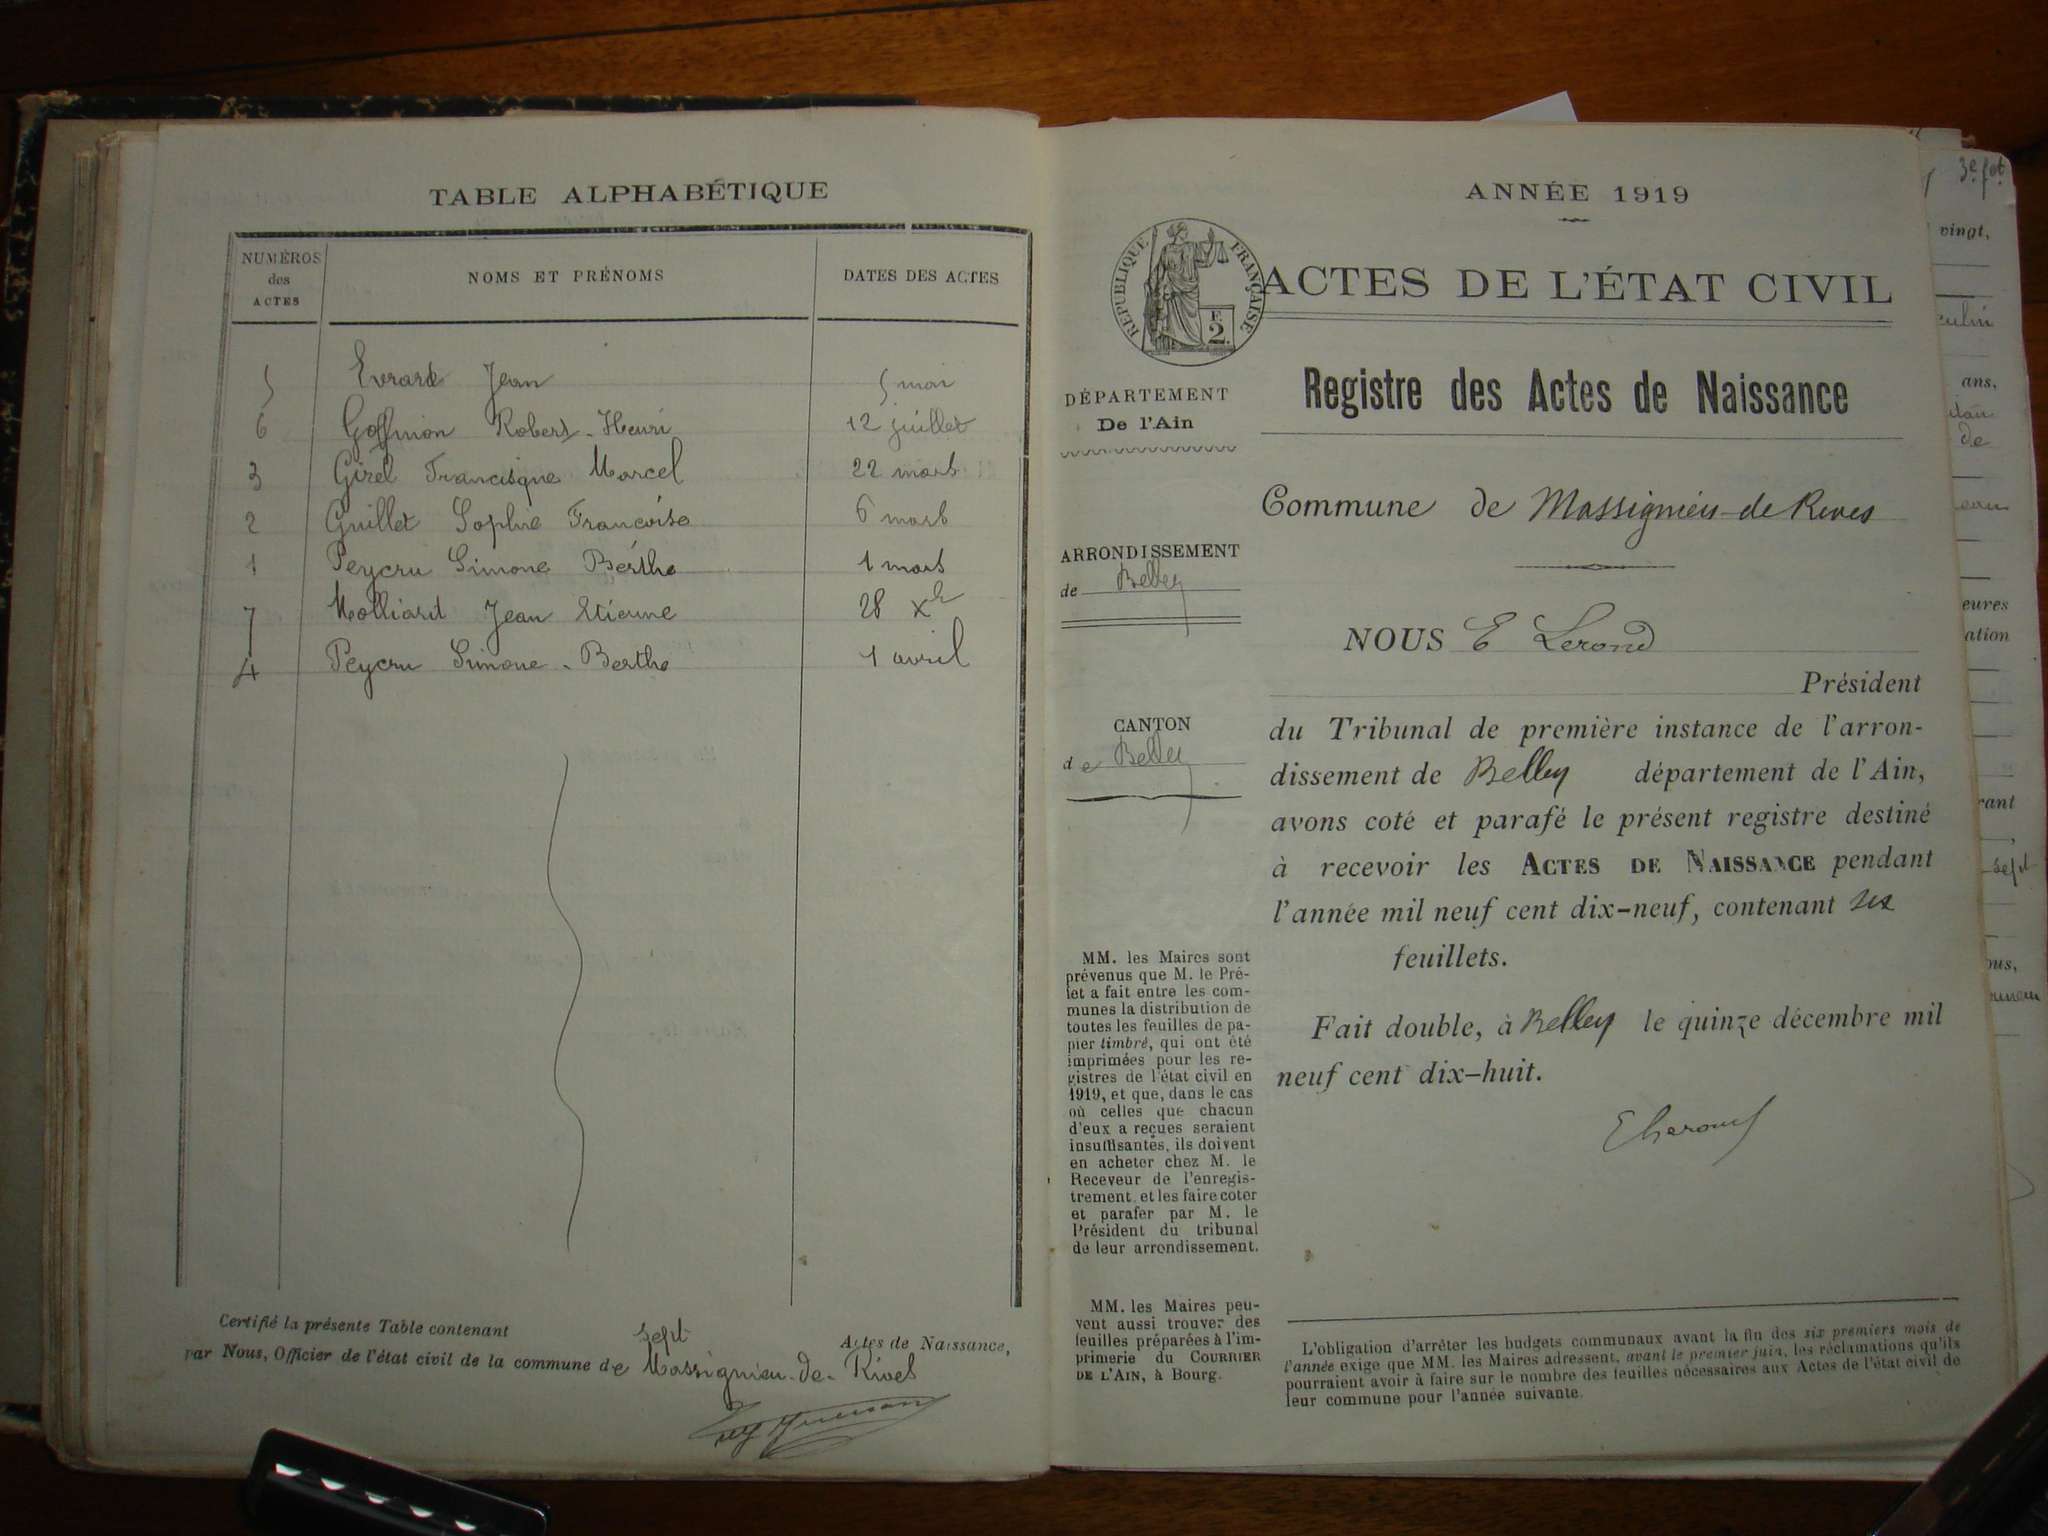 TABLE ALPHABÉTIQUE
NUMÉROS
des
ACTES
NOMS ET PRÉNOMS
DATES DES ACTES
5 Evrard Jean 5 mai
6 Goffinon Robert-Henri 12 juillet
3 Girel Francisque Marcel 22 mars
2 Guillet Sophie Françoise 6 mars
1 Peycru Simone Berthe 1 mars
7 Molliard Jean Etienne 28 Xbre
4 Peycru Simone-Berthe 1 avril
Certifié la présente Table contenant sept Actes de Naissance,
par Nous, Officier de l'état civil de la commune de Massignieu-de-Rives
ANNÉE 1919
RÉPUBLIQUE FRANÇAISE
F.
2.
ACTES DE L'ÉTAT CIVIL
Registre des Actes de Naissance
DÉPARTEMENT
De l'Ain
Commune de Massignieu-de Rives
ARRONDISSEMENT
de Belley
NOUS E Lerond
Président
CANTON
de Belley
du Tribunal de première instance de l'arron-
dissement de Belley département de l'Ain,
avons coté et parafé le présent registre destiné
à recevoir les ACTES DE NAISSANCE pendant
l'année mil neuf cent dix-neuf, contenant six
feuillets.
Fait double, à Belley le quinze décembre mil
neuf cent dix-huit.
E Lerond
MM. les Maires sont
prévenus que M. le Pré-
fet a fait entre les com-
munes la distribution de
toutes les feuilles de pa-
pier timbré, qui ont été
imprimées pour les re-
gistres de l'état civil en
1919, et que, dans le cas
où celles que chacun
d'eux a reçues seraient
insuffisantes, ils doivent
en acheter chez M. le
Receveur de l'enregis-
trement, et les faire coter
et parafer par M. le
Président du tribunal
de leur arrondissement.
MM. les Maires peu-
vent aussi trouver des
feuilles préparées à l'im-
primerie du COURRIER
DE L'AIN, à Bourg.
L'obligation d'arrêter les budgets communaux avant la fin des six premiers mois de
l'année exige que MM. les Maires adressent, avant le premier juin, les réclamations qu'ils
pourraient avoir à faire sur le nombre des feuilles nécessaires aux Actes de l'état civil de
leur commune pour l'année suivante.
3e fet
vingt,
ans,
de
eures
ation
rant
sept
ous,